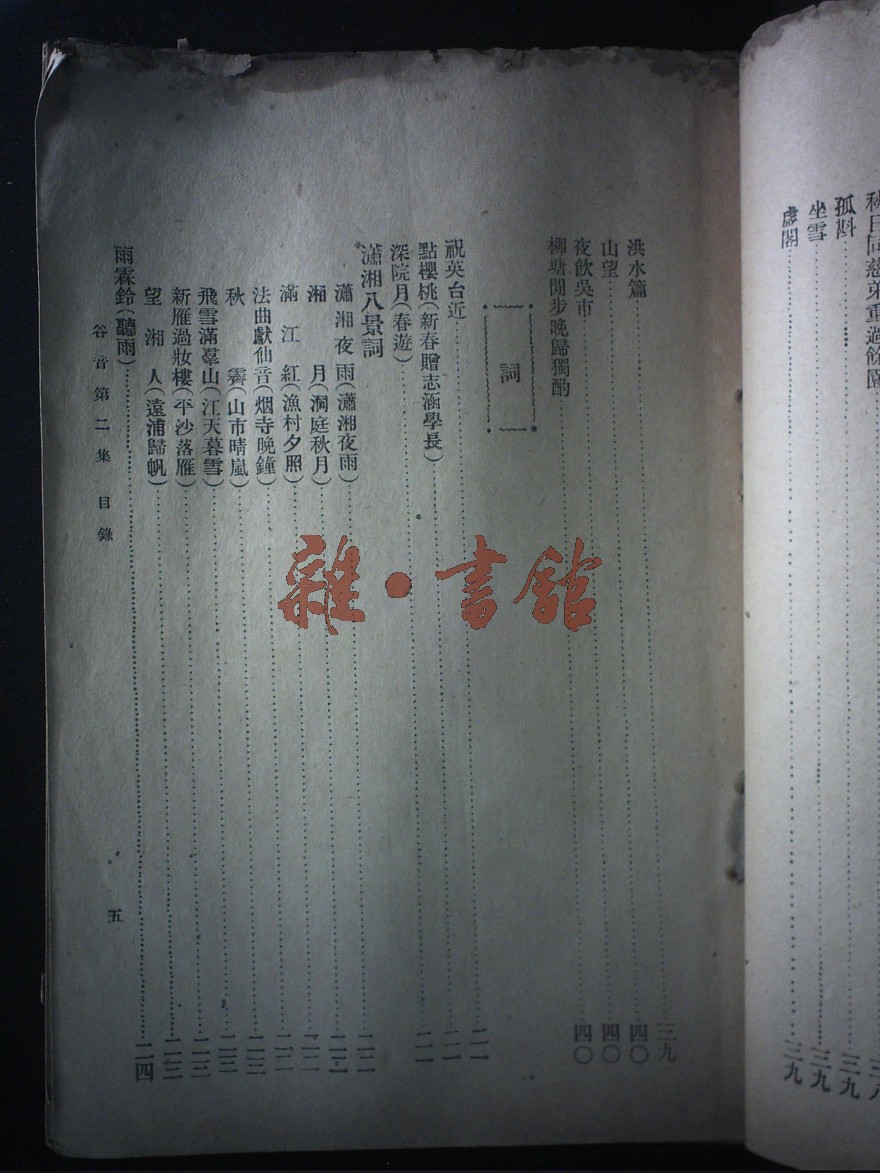 秋日同慈弟重過餘園
孤斟……三九
坐雪……三九
虛閣……三九
洪水篇……三九
山望……四〇
夜飲吳市……四〇
柳塘閒步晚歸獨酌……四〇
詞
祝英台近……
點櫻桃(新春贈志涵學長)……
深院月(春遊)……
瀟湘八景詞
瀟湘夜雨(瀟湘夜雨)……
湘月(洞庭秋月)……
滿江紅(漁村夕照)……
法曲獻仙音(烟寺晚鐘)……
秋霽(山市晴嵐)……
飛雪滿羣山(江天暮雪)……
新雁過妝樓(平沙落雁)……
望湘人(遠浦歸帆)……
雨霖鈴(聽雨)……二四
谷音第二集 目錄
五
雜·書館